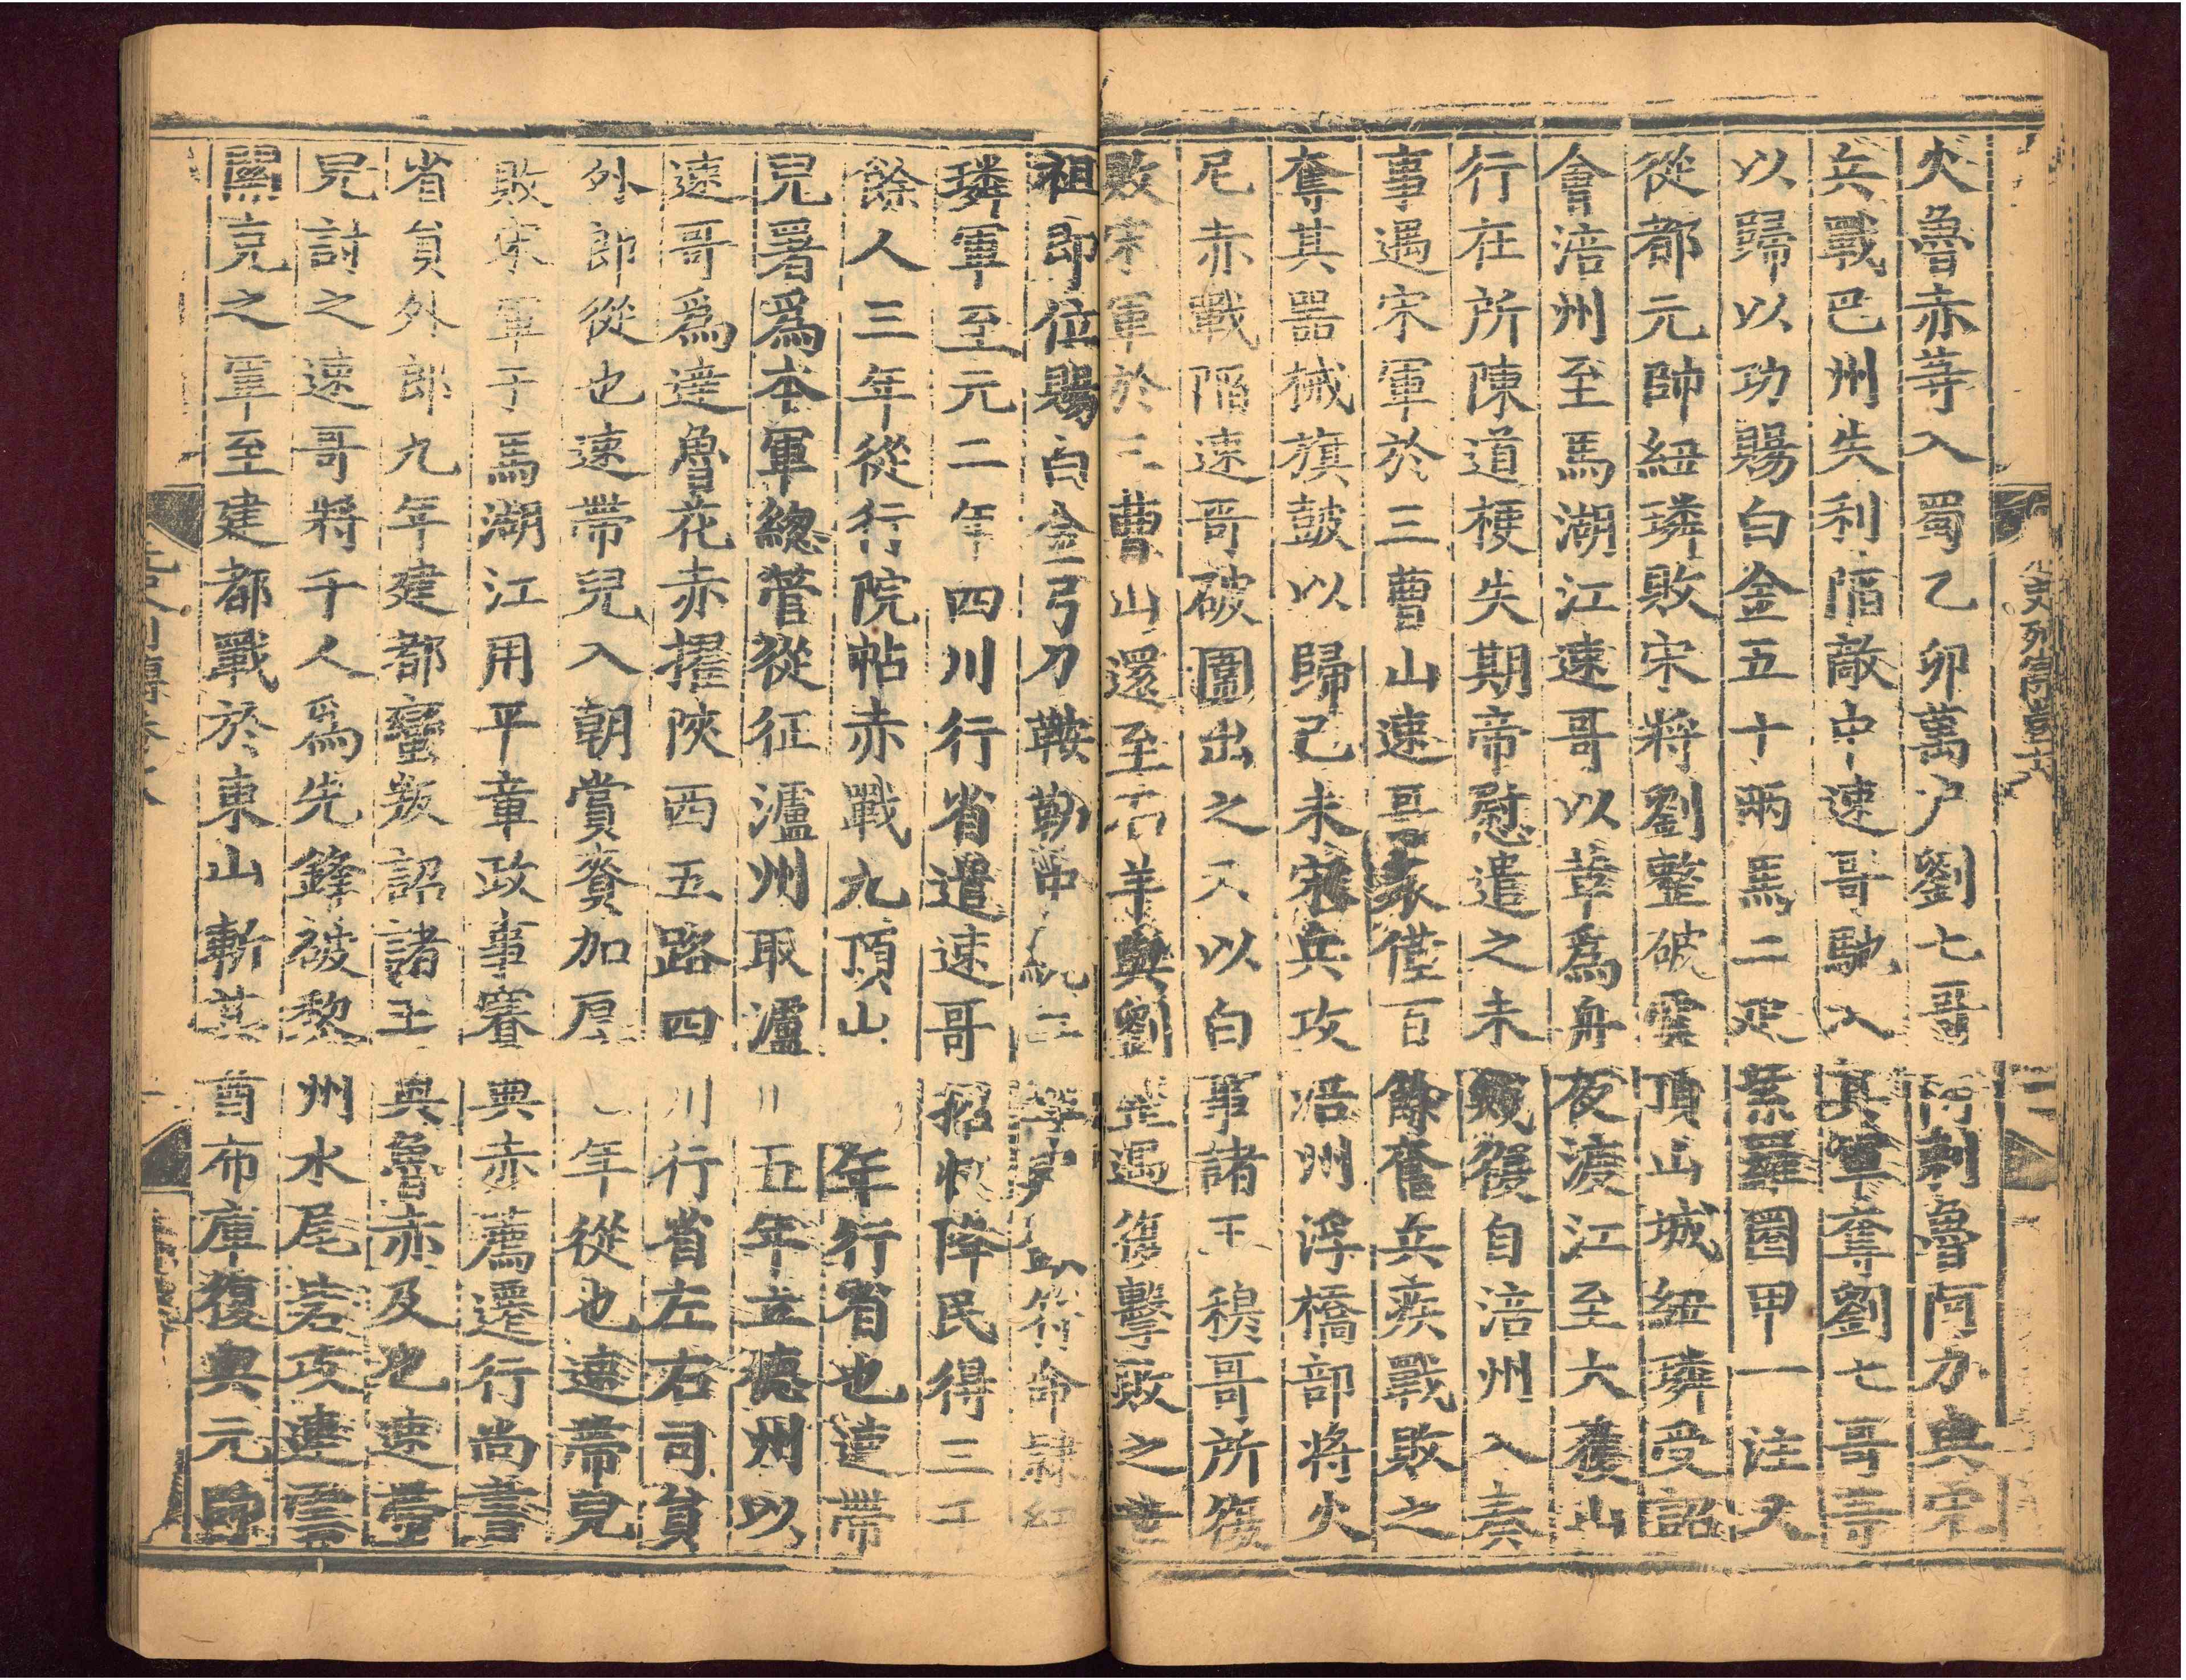 火魯赤等入蜀乙卯萬户劉七哥阿剌魯阿力與宋
兵戰巴州失利陷敵中速哥馳入其軍奪劉七哥等
以歸以功賜白金五十兩馬二疋紫羅圈甲一注又
從都元帥紐璘敗宋將劉整破雲頂山城紐璘受詔
會涪州至馬湖江速哥以革爲舟夜渡江至大獲山
行在所陳道梗失期帝慰遣之未幾復自涪州入奏
事遇宋軍於三曹山速哥衆僅百餘奮兵疾戰敗之
奪其噐械旗鼓以歸己未宋兵攻涪州浮橋部將火
尼赤戰陷速哥破圍出之又以白事諸王穆哥所復
敗宋軍於三曹山還至石羊與劉整遇復擊敗之世
祖即位賜白金弓刀鞍勒中統三年 符命隸紐
璘軍至元二年四川行省遣速哥招收降民得三千
餘人三年從行院帖赤戰九頂山 年行省也速帶
兒署爲本軍緫管從征瀘州取瀘川五年立德州以
速哥爲達魯花赤擢陜西五路四川行省左右司貟
外郎從也速帶兒入朝賞賚加厚 年從也速帶兒
敗宋軍于馬湖江用平章政事賽典赤薦遷行尚書
省貟外郎九年建都蠻叛詔諸王奥魯赤及也速帶
兒討之速哥將千人爲先鋒破黎州水尾岩攻連雲
關克之軍至建都戰於東山斬其酋布庫復與元帥